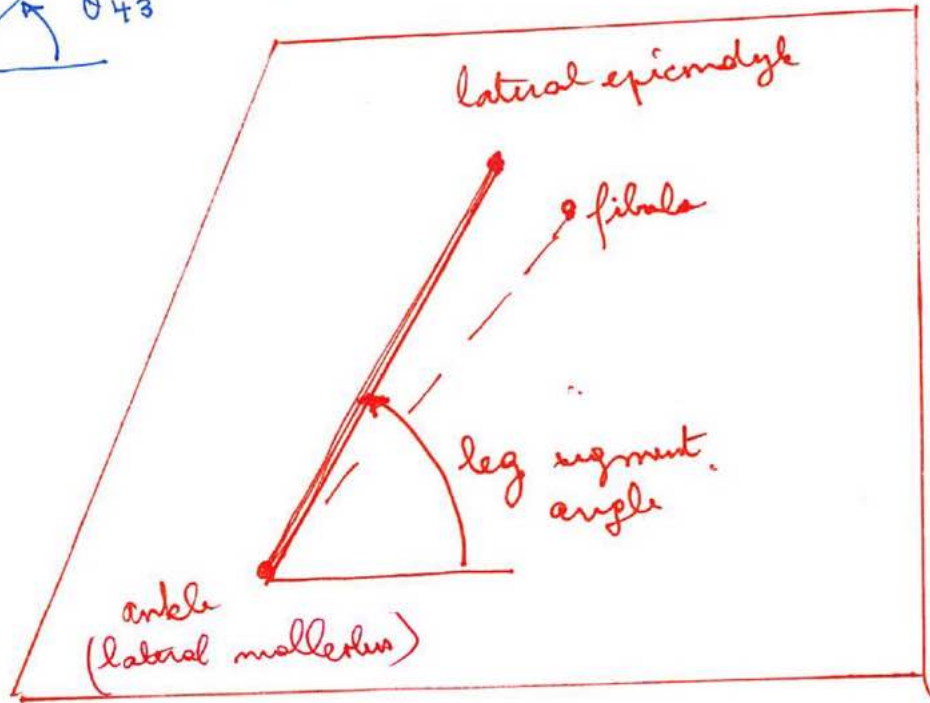 θ43
lateral epicondyle
fibula
leg segment
angle
ankle
(lateral malleolus)